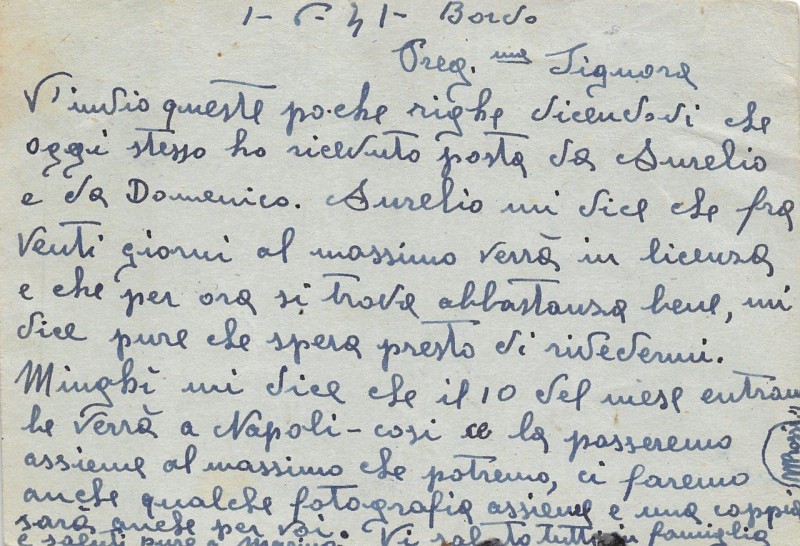 1-6-41- Bordo
Preg.ma Signora
V'invio queste poche righe dicendovi che
oggi stesso ho ricevuto posta da Aurelio
e da Domenico. Aurelio mi dice che fra
venti giorni al massimo verrà in licenza
e che per ora si trova abbastanza bene, mi
dice pure che spera presto di rivedermi.
Minghì mi dice che il 10 del mese entran
te verrà a Napoli - così la passeremo
assieme al massimo che potremo, ci faremo
anche qualche fotografia assieme e una coppia
sarà anche per voi. Vi saluto tutti in famiglia
e saluti pure a